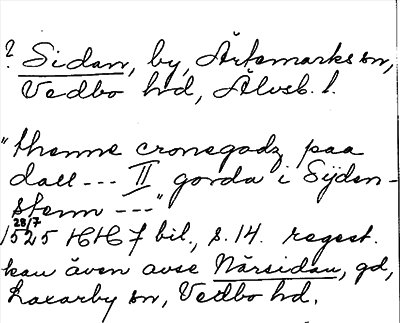 ? Sidan, by, Ärtemarks sn,
Vedbo hd, Älvsb. l.
"thenne cronegodz paa
dall --- II gorda i Sÿden-
stenn ---"
28/7
1525 HH 7 bil., s. 14. regest.
kan även avse Närsidan, gd,
Laxarby sn, Vedbo hd.